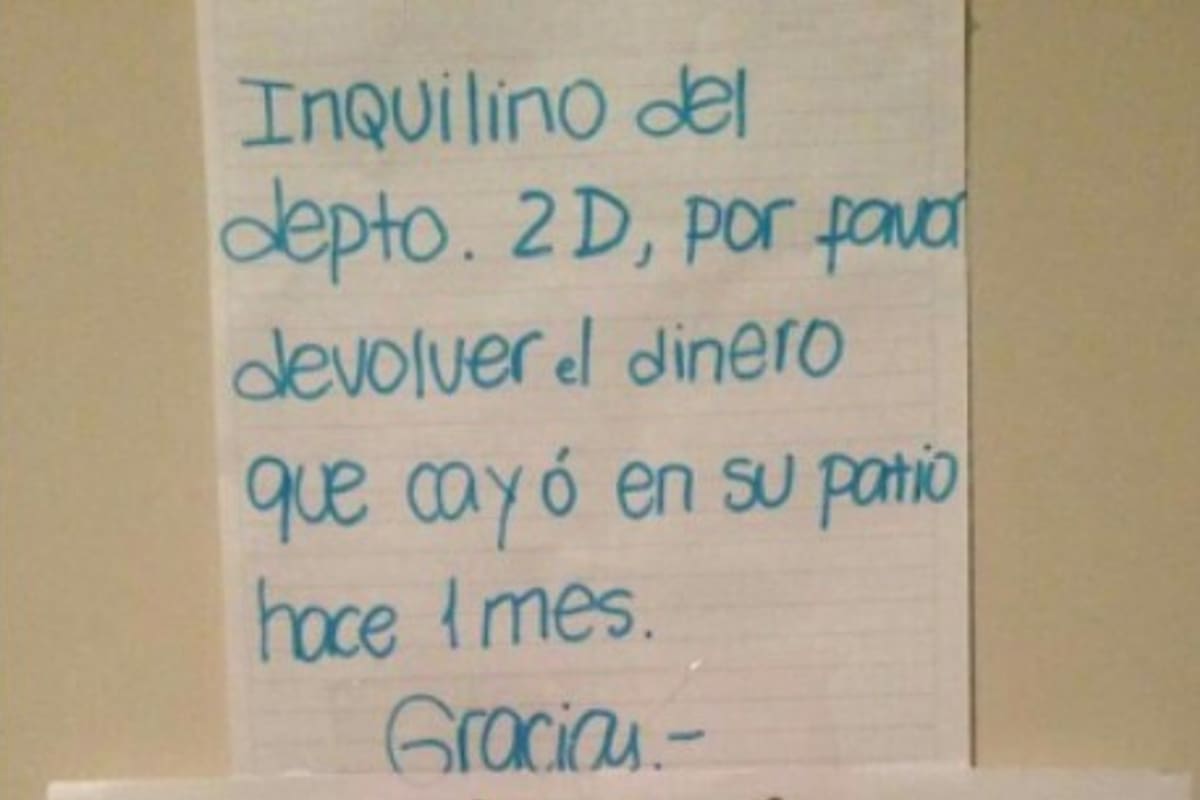 Inquilino del
depto. 2D, por favor
devolver el dinero
que cayó en su patio
hace 1 mes.
Gracias.-